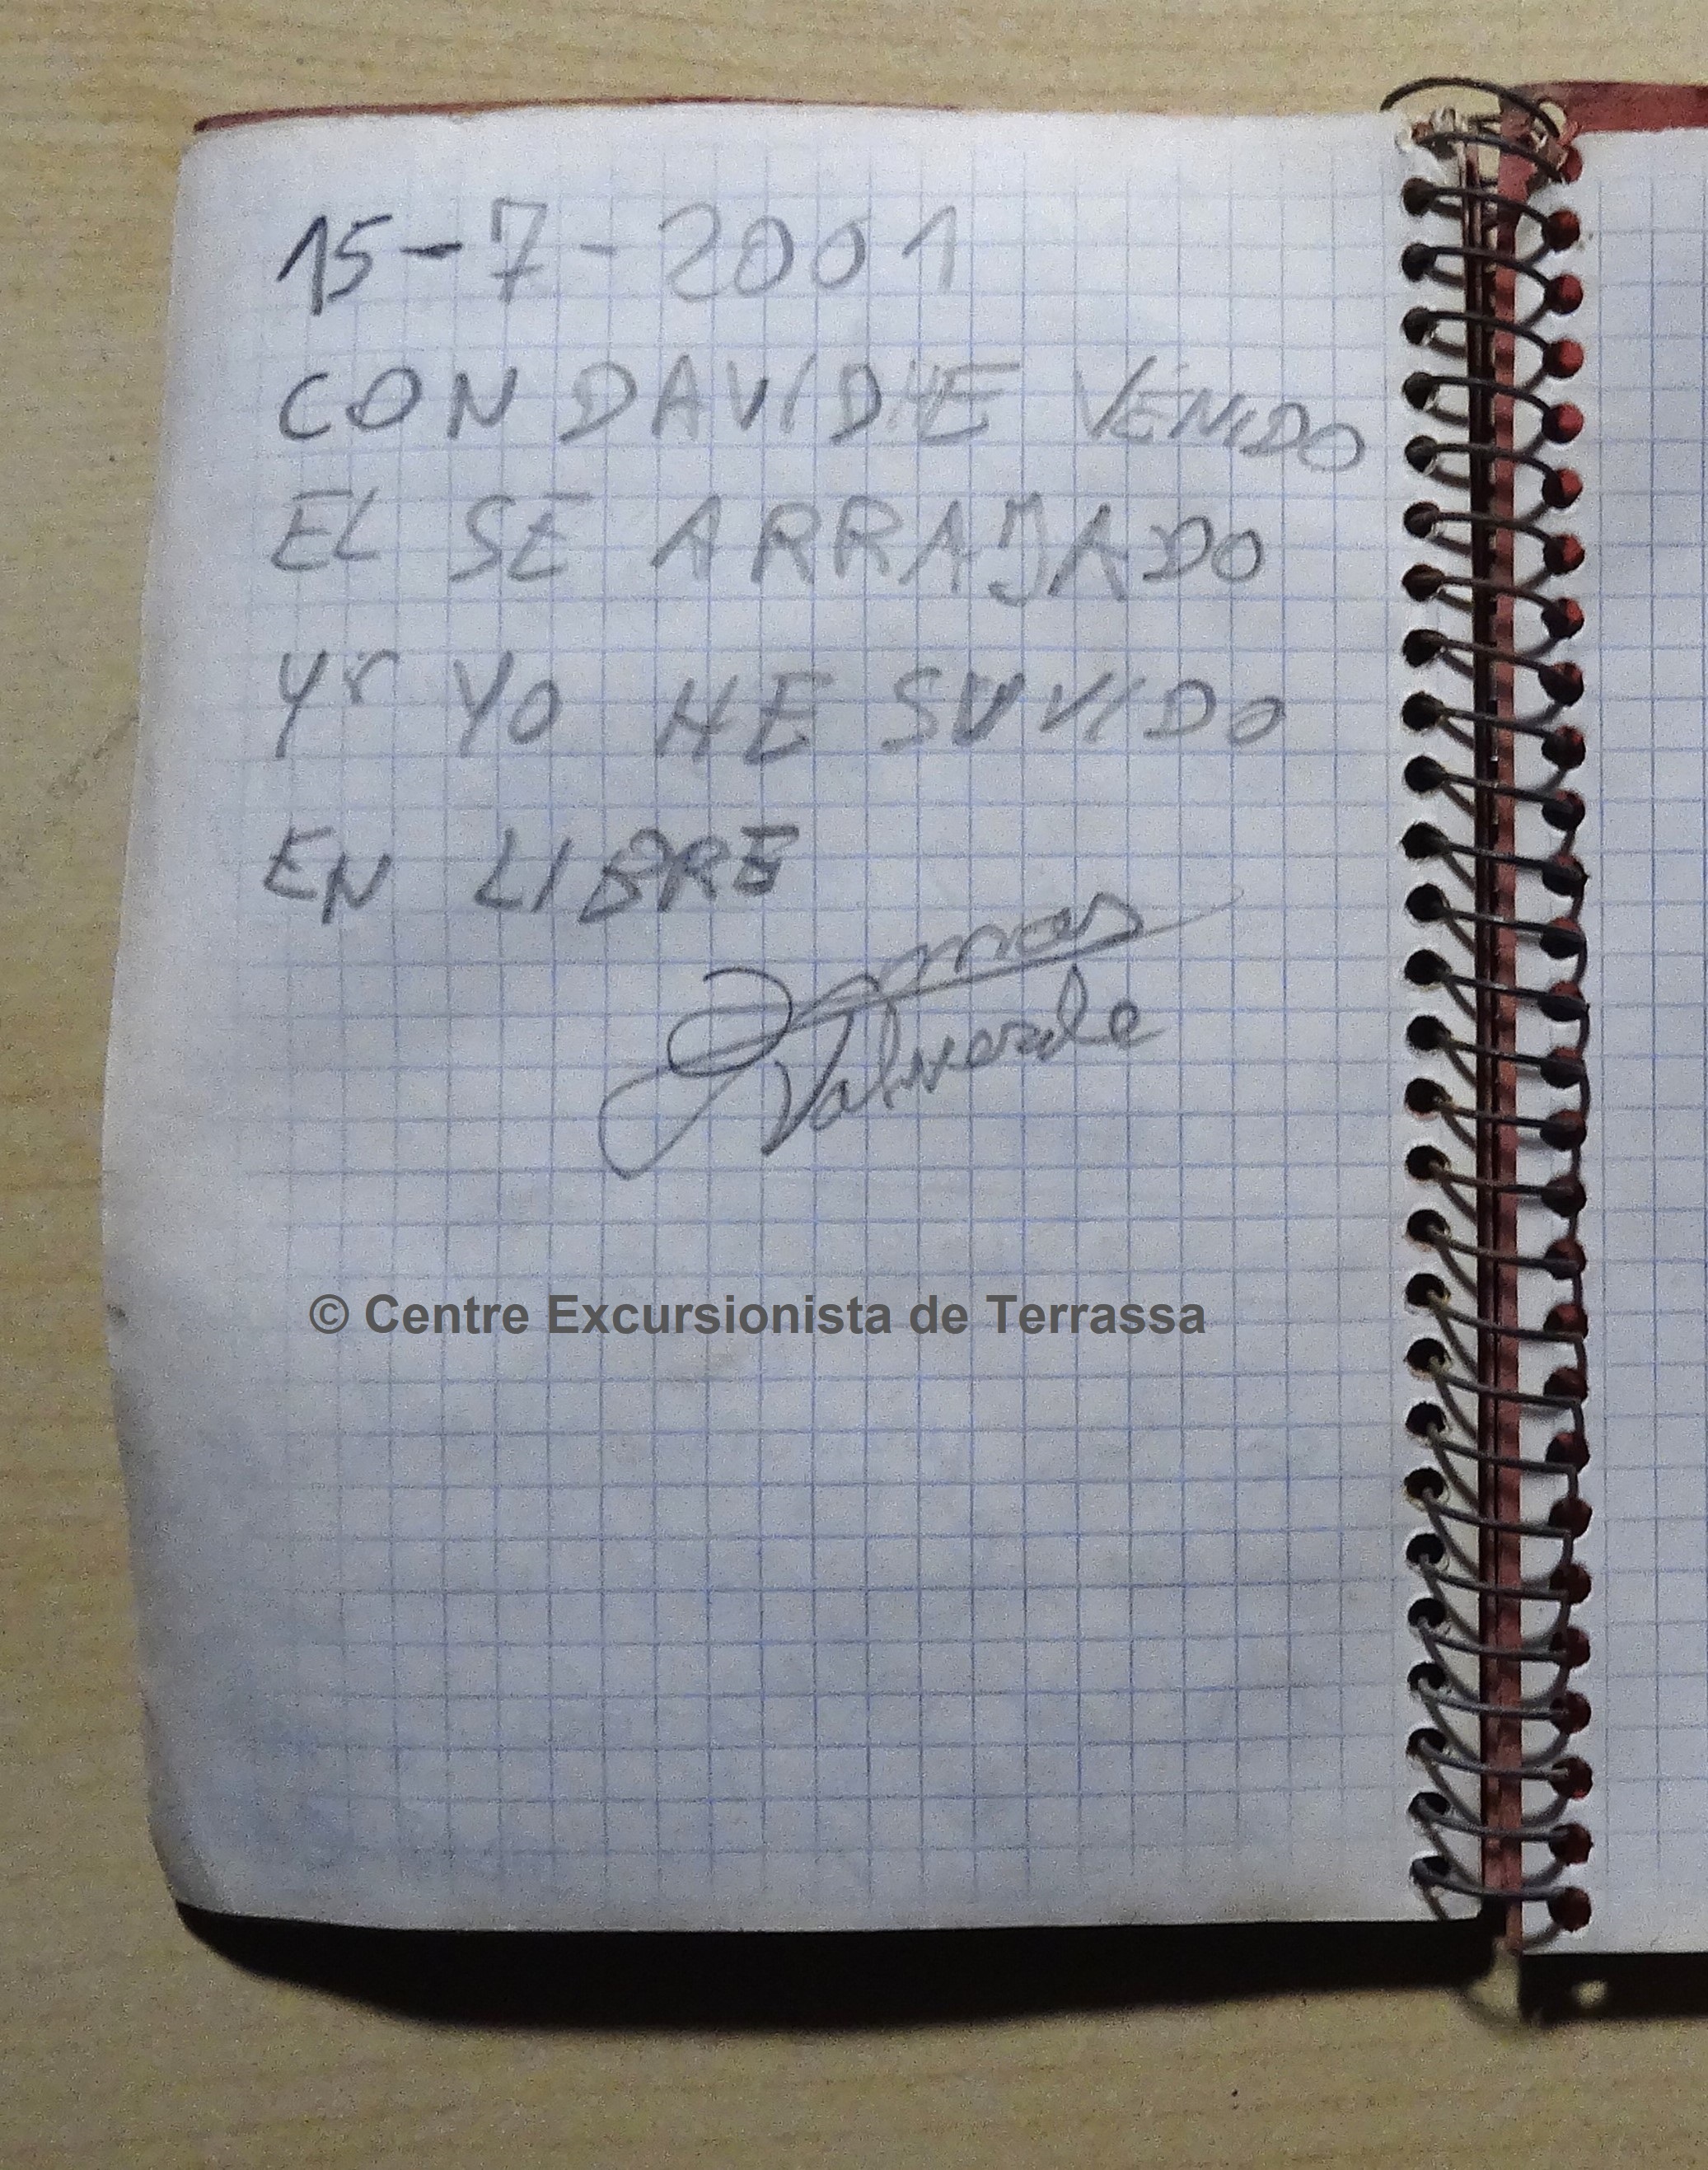 15-7-2001
CON DAVID HE VENIDO
EL SE ARRAJADO
Y YO HE SUVIDO
EN LIBRE
Valverde
© Centre Excursionista de Terrassa